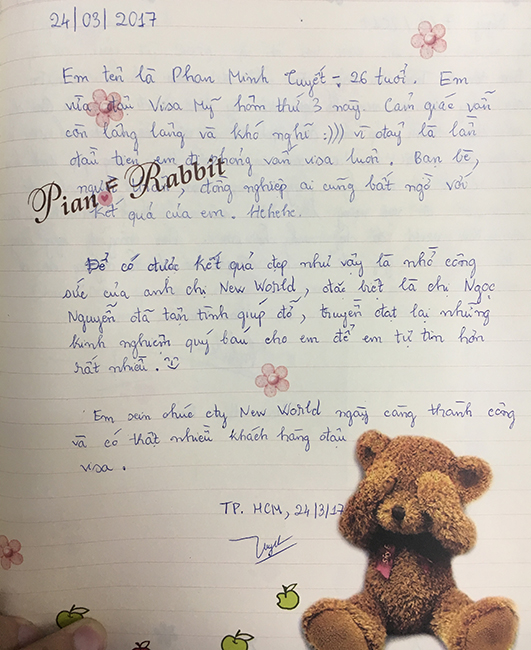 24/03/2017
Em tên là Phan Minh Tuyết - 26 tuổi. Em
vừa đậu Visa Mỹ hôm thứ 3 này. Cảm giác vẫn
còn lâng lâng và khó nghĩ :))) vì đây là lần
đầu tiên em đi phỏng vấn visa luôn. Bạn bè,
người thân, đồng nghiệp ai cũng bất ngờ với
Pian E Rabbit
kết quả của em. Hehehe.
Để có được kết quả đẹp như vậy là nhờ công
sức của anh chị New World, đặc biệt là chị Ngọc
Nguyễn đã tận tình giúp đỡ, truyền đạt lại những
kinh nghiệm quý báu cho em để em tự tin hơn
rất nhiều.
Em xin chúc cty New World ngày càng thành công
và có thật nhiều khách hàng đậu
visa.
TP. HCM, 24/3/17
Tuyết